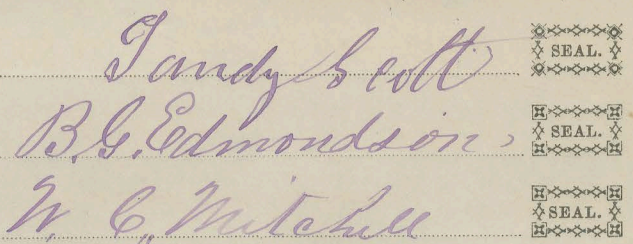 Tandy Scott SEAL.
B.G. Edmondson SEAL.
W. C. Mitchell SEAL.